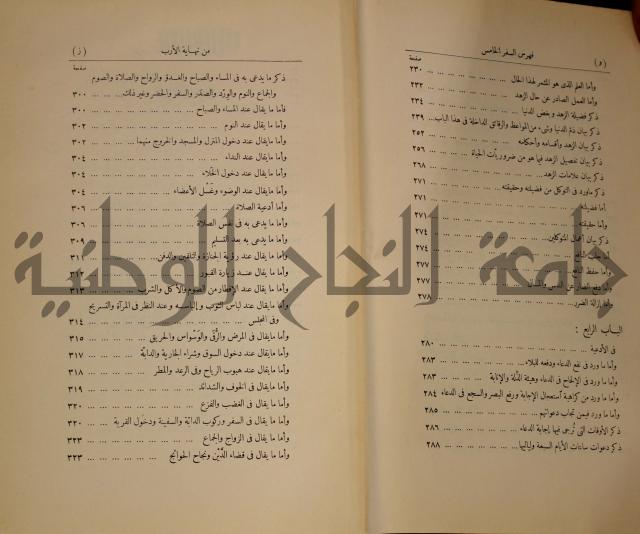 (و) فهرس السفر الخامس
صفحة
وأما العلم الذى هو المثمر لهذا الحال ... ٢٣٠
وأما العمل الصادر عن حال الزهد ... ٢٣٢
ذكر فضيلة الزهد وبغض الدنيا ... ٢٣٤
ذكر بيان ذم الدنيا وشىء من المواعظ والرقائق الداخلة فى هذا الباب... ٢٣٩
ذكر بيان الزهد وأقسامه وأحكامه ... ٢٥٢
ذكر بيان تفصيل الزهد فيما هو من ضروريات الحياة ... ٢٥٦
ذكر بيان علامات الزهد ... ٢٦٨
ذكر ماورد فى التوكل من فضيلته وحقيقته ... ٢٧١
أما فضيلته ... ٢٧١
وأما حقيقته ... ٢٧١
ذكر بيان أعمال المتوكلين ... ٢٧٤
٢٧٤
٢٧٧
٢٧٧
إزالة الضرر ... ٢٧٨
الباب الرابع :
فى الأدعية ... ٢٨٠
وأما ما ورد فى نفع الدعاء ودفعه للبلاء ... ٢٨٣
وأما ما ورد فى الإلحاح فى الدعاء وهيئة الذلة والإنابة ... ٢٨٣
وأما ما ورد من كراهية استعجال الإجابة ورفع البصر والسجع فى الدعاء ٢٨٤
وأما ما ورد فيمن تجاب دعواتهم ... ٢٨٥
ذكر الأوقات التى تُرجى فيها إجابة الدعاء ... ٢٨٦
ذكر دعوات ساعات الأيام السبعة ولياليها ... ٢٨٨
من نهاية الأرب (ز)
صفحة
ذكر ما يدعى به فى المساء والصباح والغدو والرواح والصلاة والصوم
والجماع والنوم والورد والصدر والسفر والحضر وغير ذلك ... ٣٠٠
فأما ما يقال عند المساء والصباح ... ٣٠٠
وأما ما يقال عند النوم ... ٣٠٢
وأما مايقال عند دخول المنزل والمسجد والخروج منهما ... ٣٠٢
وأما مايقال عند النداء ... ٣٠٤
وأما مايقال عند دخول الخلاء ... ٣٠٤
وأما مايقال عند الوضوء وغسل الأعضاء ... ٣٠٤
وأما أدعية الصلاة ... ٣٠٦
وأما ما يدعى به فى نفس الصلاة ... ٣٠٦
وأما ما يدعى به بعد التسليم ... ٣٠٩
وأما مايقال عند رؤية الجنازة والتلقين والدفن ... ٣١١
وأما مايقال عند زيارة القبور ... ٣١٢
وأما مايقال عند الإفطار من الصوم والأكل والشرب ... ٣١٣
وأما مايقال عند لباس الثوب والنظر فى المرآة والتسريح
وفى المجلس ... ٣١٤
وأما مايقال فى المرض والرُّقَى والوسواس والحريق ... ٣١٥
وأما مايقال عند دخول السوق وشراء الجارية والدابة ... ٣١٧
وأما مايقال عند هبوب الرياح وفى الرعد والمطر ... ٣١٨
وأما مايقال فى الخوف والشدائد ... ٣١٩
وأما ما يقال فى الغضب والفزع ... ٣٢٠
وأما ما يقال فى السفر وركوب الدابة والسفينة ودخول القرية ... ٣٢٠
وأما ما يقال فى الزواج والجماع ... ٣٢٣
وأما ما يقال فى قضاء الدَّيْن ونجاح الحوائج ... ٣٢٣
جامعة النجاح الوطنية